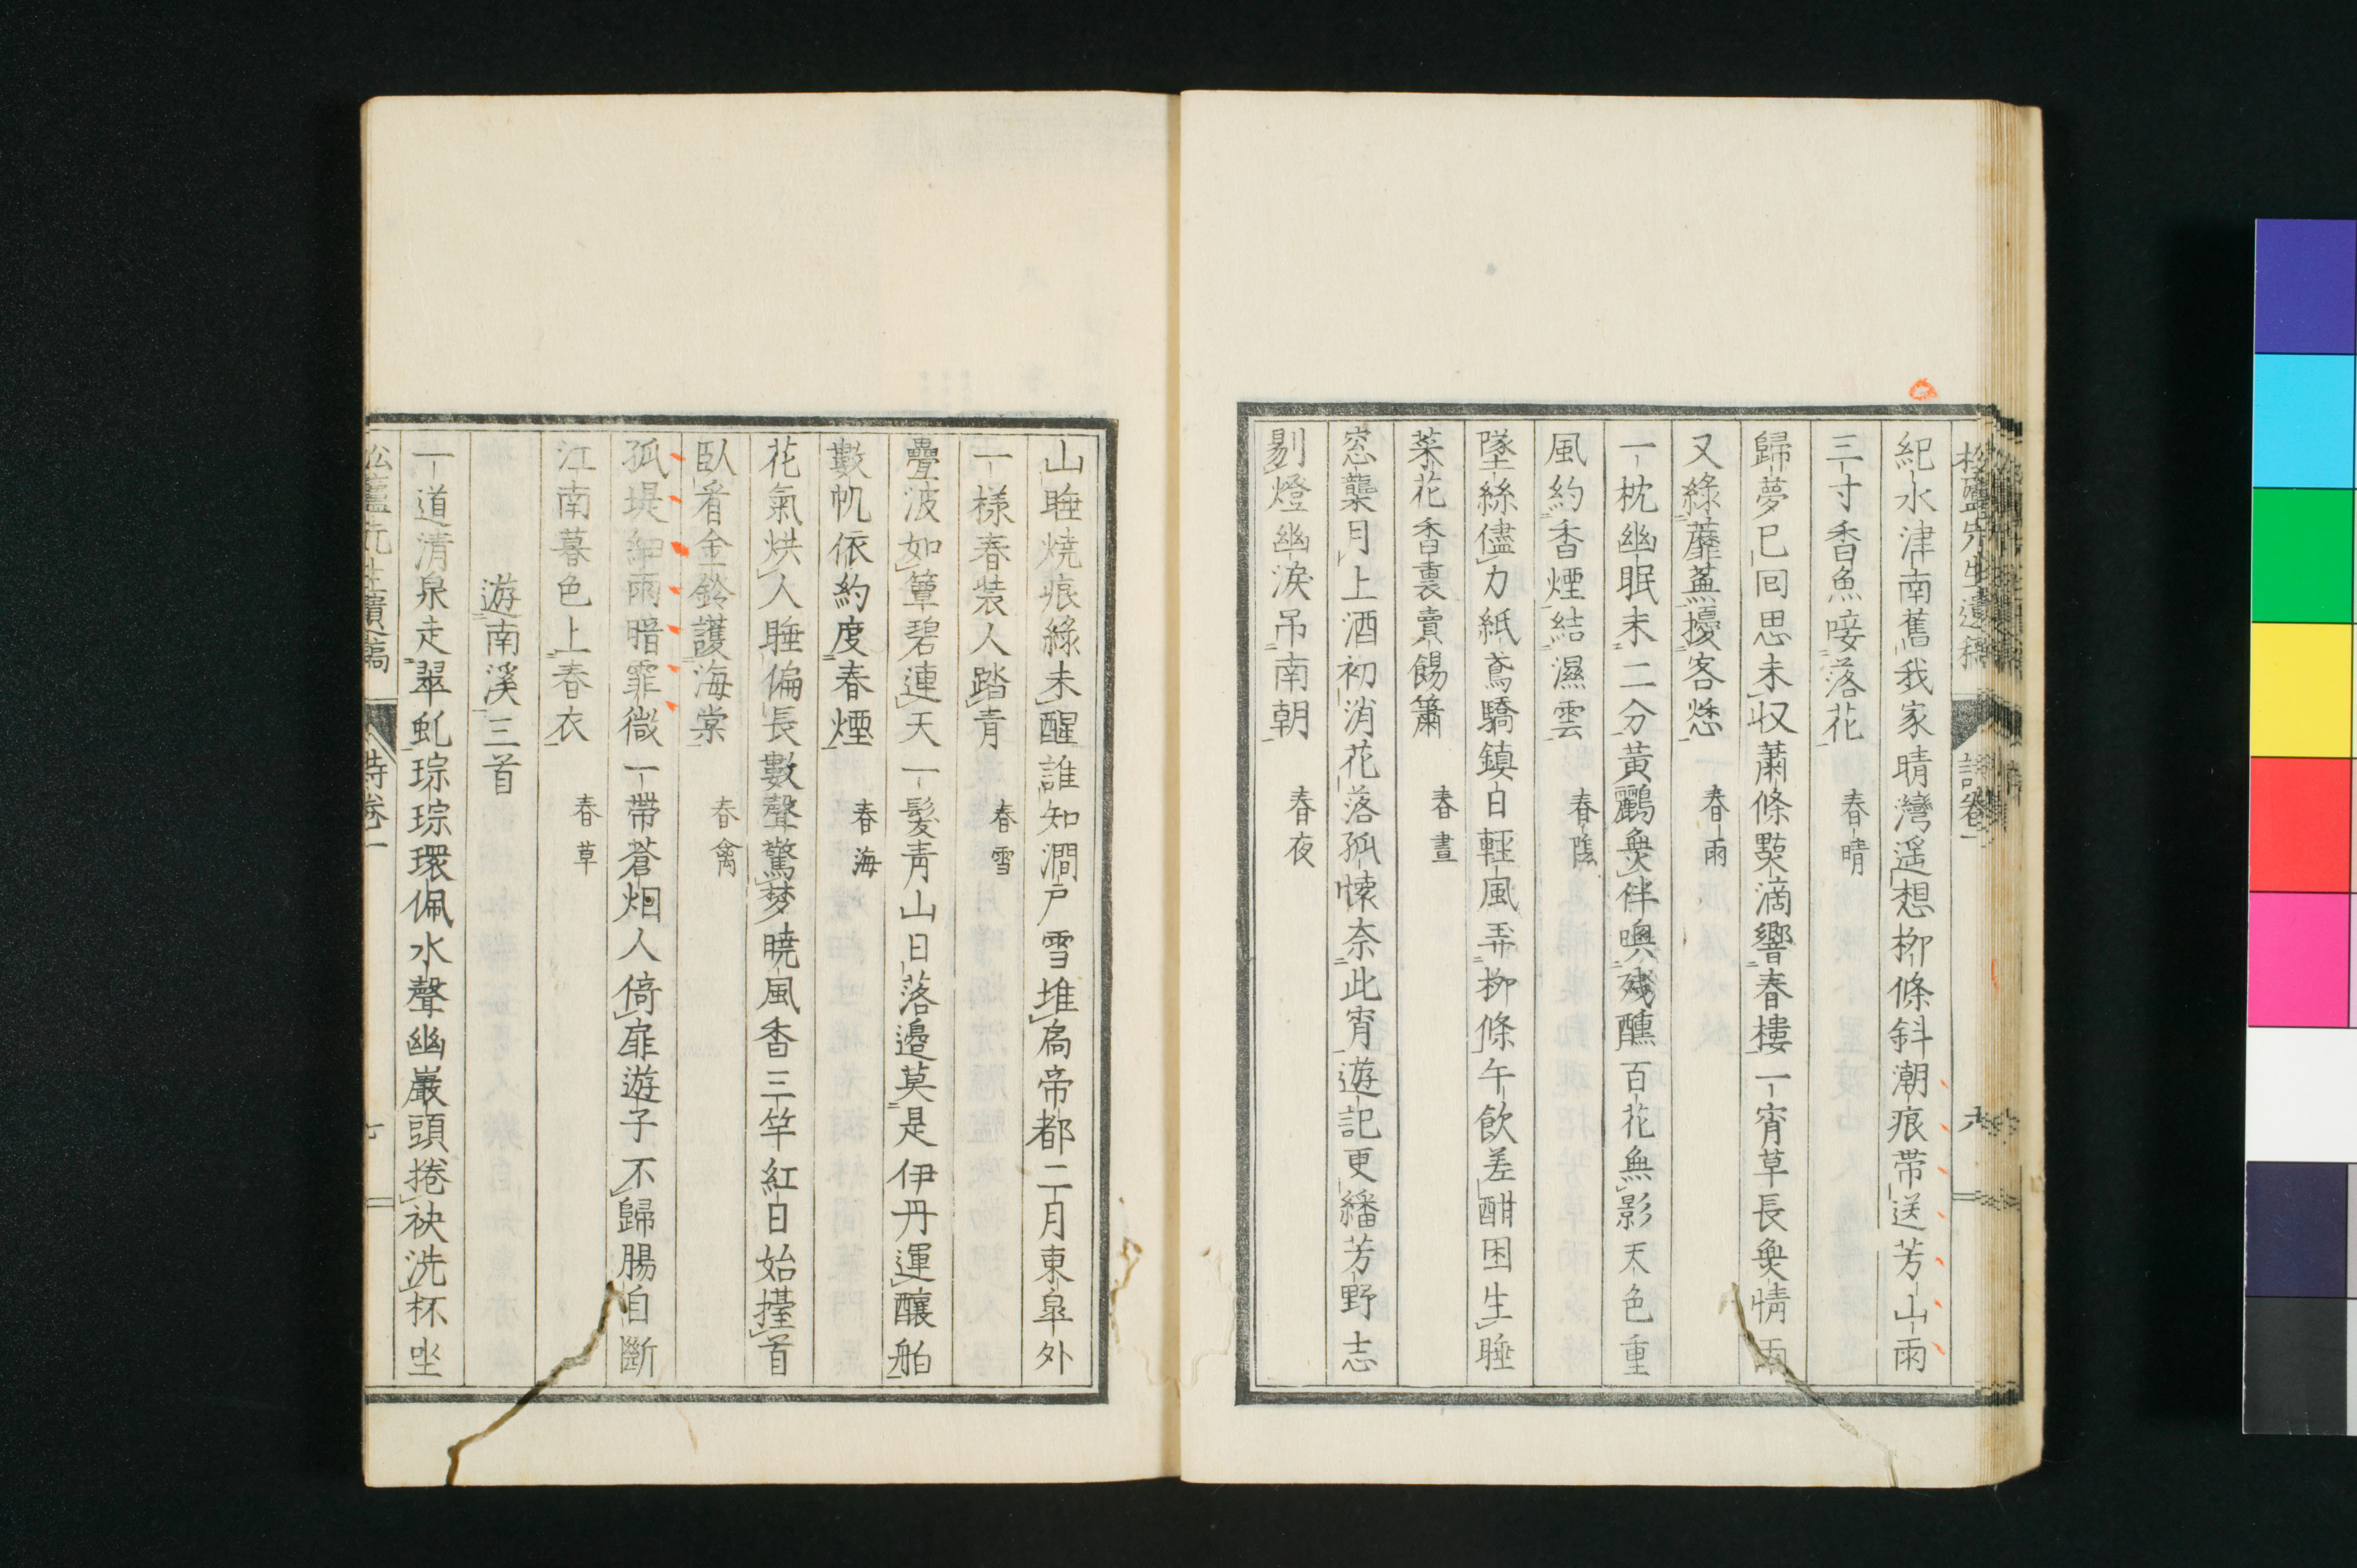 紀水津南舊我家晴灣遥想柳條斜潮痕帶送芳山雨
三寸香魚唼落花　春晴
歸夢已回思未収蕭條㸃滴響春樓一宵草長奧情雨
又綠蘼蕪擾客愁　春雨
一枕幽眠未二分黄鸝無伴喚殘醺百花無影天色重
風約香煙結濕雲　春陰
墜絲儘力紙鳶驕鎮日輕風弄柳條午飲差酣困生睡
菜花香裏賣餳簫　春晝
窓襲月上酒初消花落孤懷奈此宵遊記更繙芳野志
剔燈幽淚吊南朝　春夜
詩卷一
山睡燒痕綠未醒誰知澗戶雪堆扃帝都二月東皐外
一樣春裝人踏青　春雪
疊波如簟碧連天一髮青山日落邉莫是伊丹運釀舶
數帆依約度春煙　春海
花氣烘人睡偏長數聲驚夢曉風香三竿紅日始擡首
臥看金鈴護海棠　春禽
孤堤細雨暗霏微一帶蒼烟人倚扉遊子不歸腸自斷
江南暮色上春衣　春草
遊南溪三首
一道清泉走翠虬琮琮環佩水聲幽巖頭捲袂洗杯坐
詩卷一